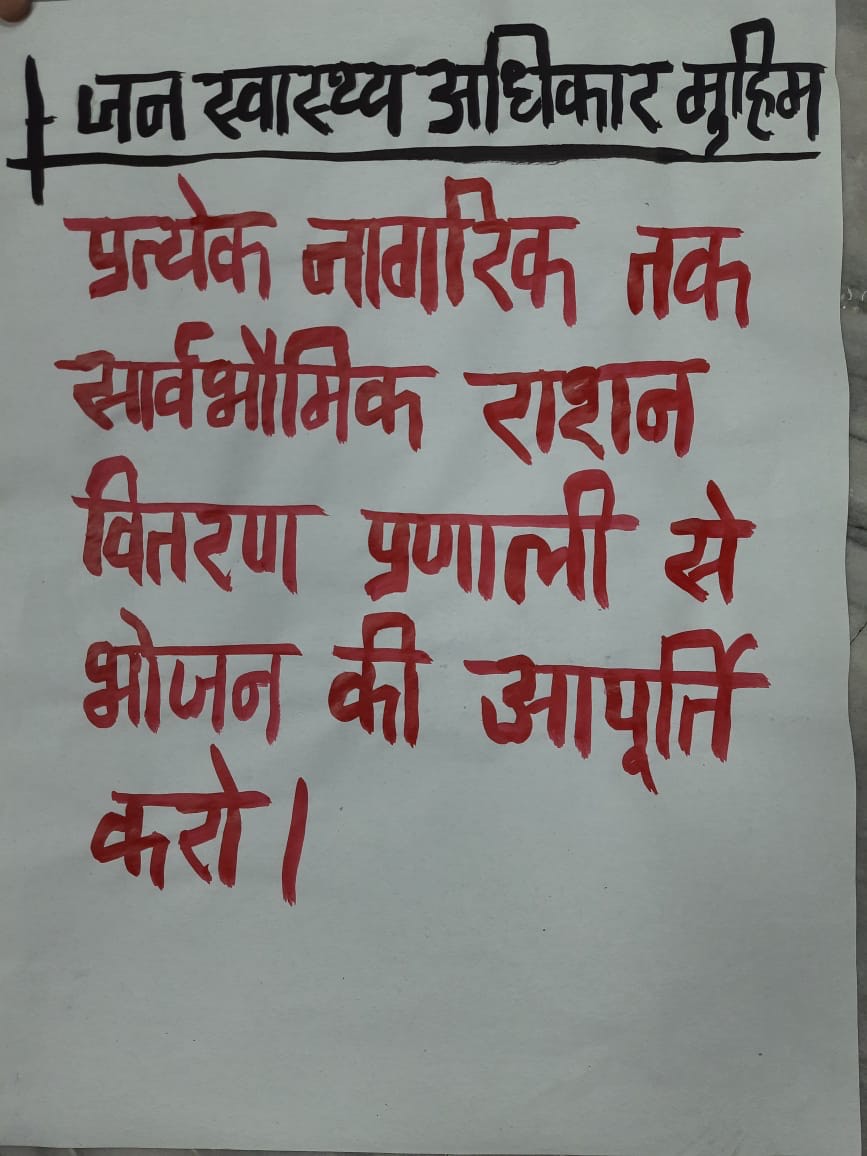 जन स्वास्थ्य अधिकार मुहिम
प्रत्येक नागरिक तक
सार्वभौमिक राशन
वितरण प्रणाली से
भोजन की आपूर्ति
करो।